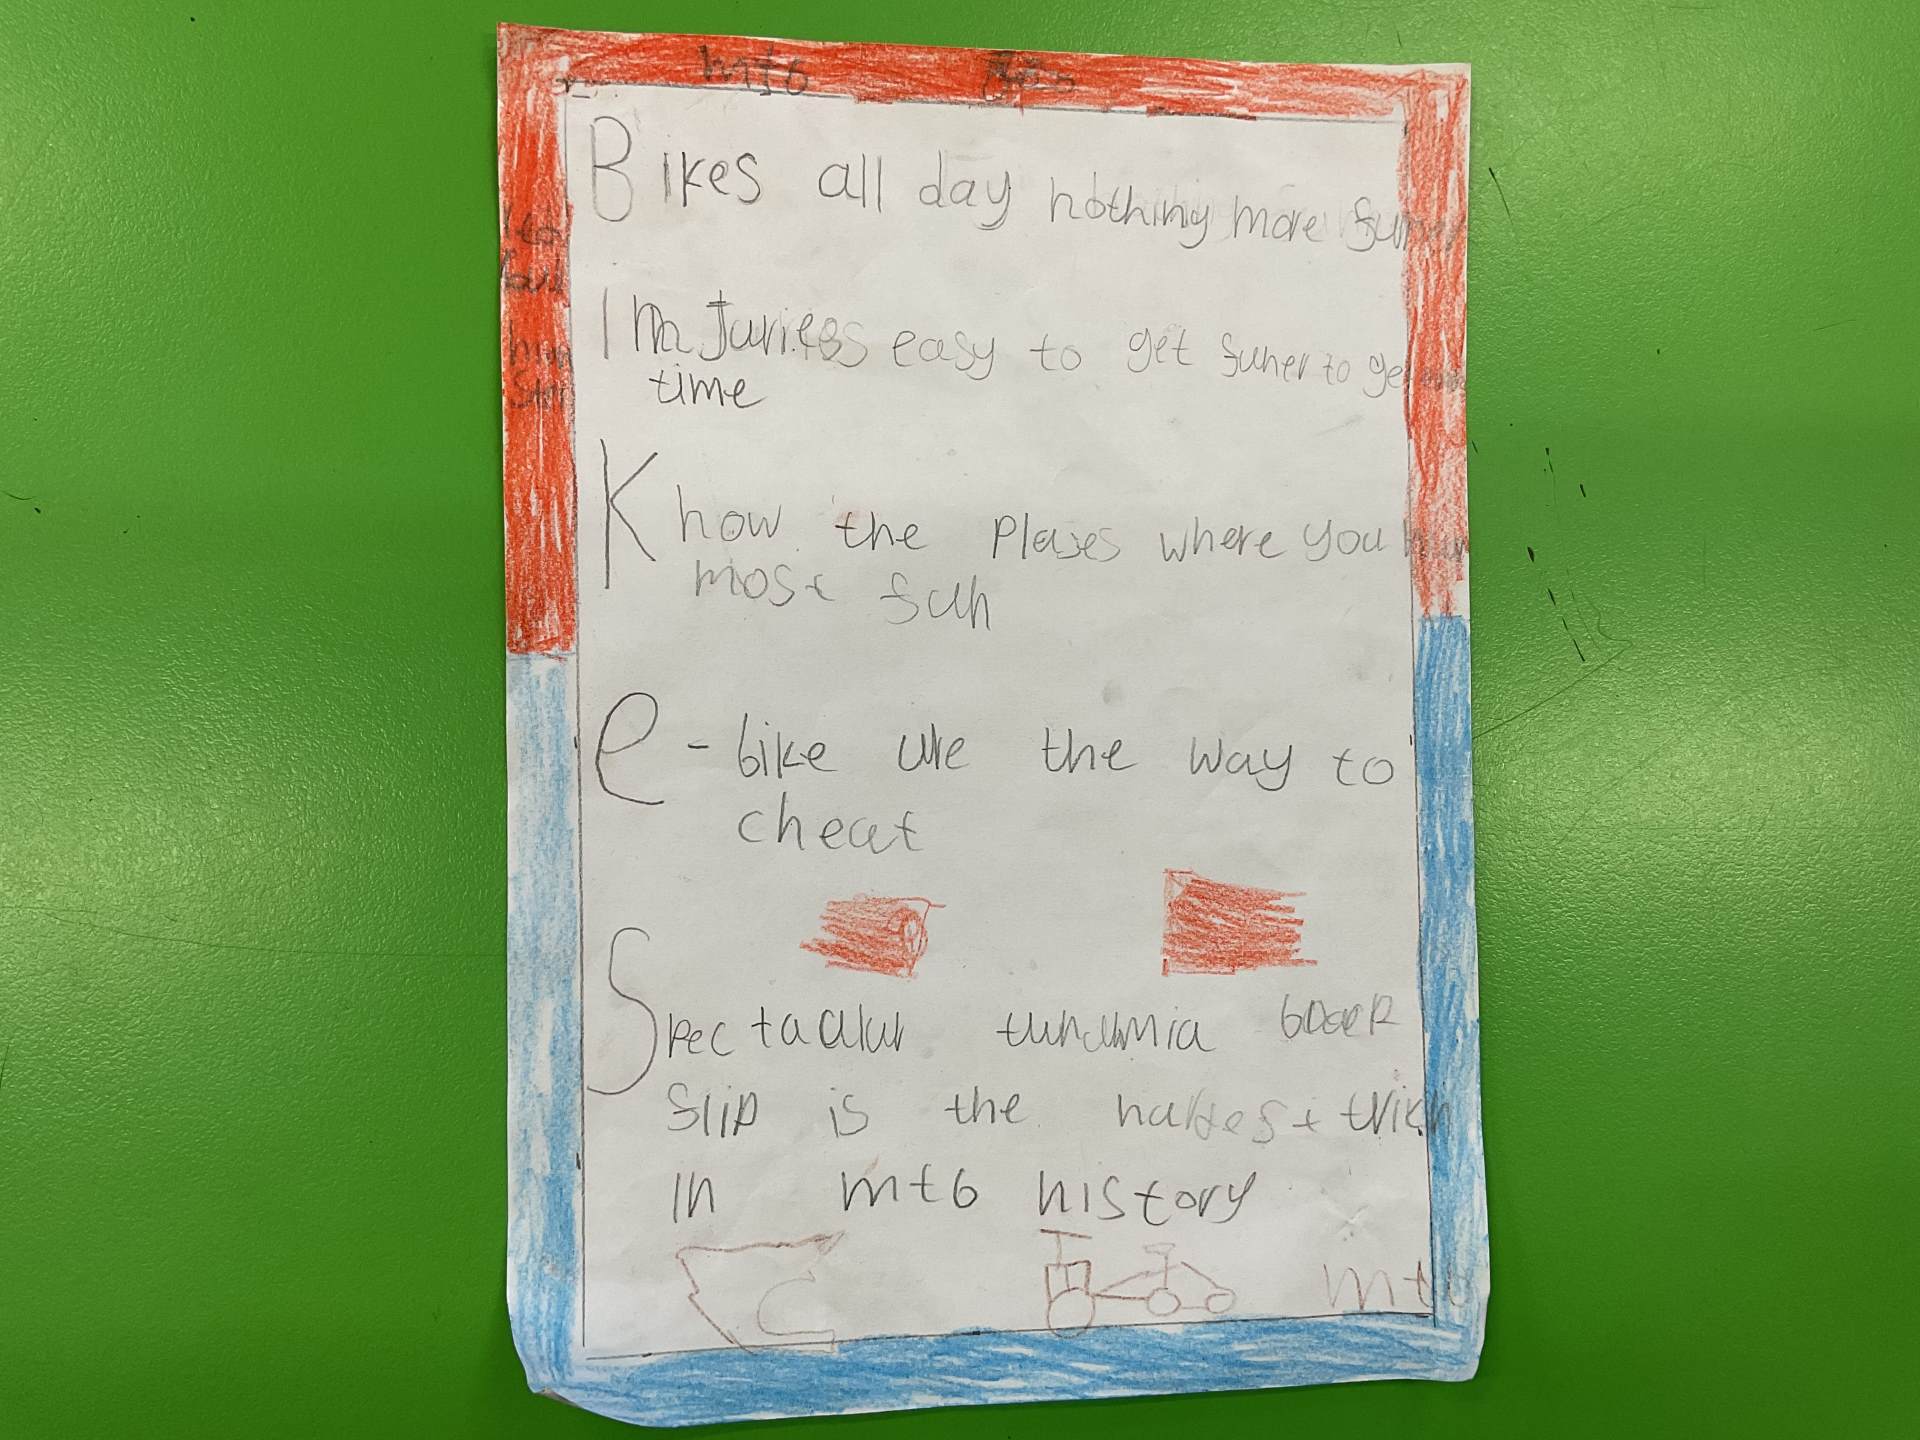 mtb
Bikes all day nothing more funer
Injuriees easy to get funer to get
time
Know the plases where you
most fun
e - bike are the way to
cheat
Spectacular
slip is the hardest trick
in mtb history
mtb